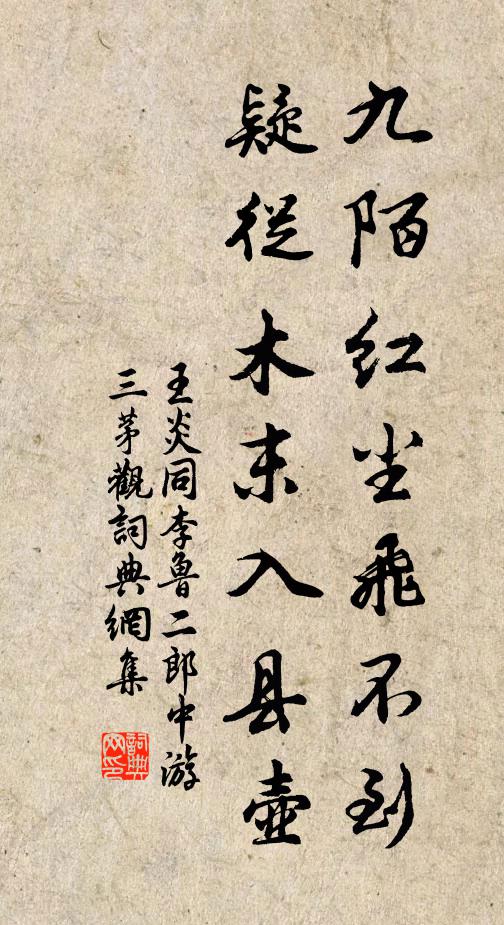 九陌红尘飛不到
疑從木末入县壺
王炎同李魯二郎中游
三茅觀詞典網集
詞典
网印